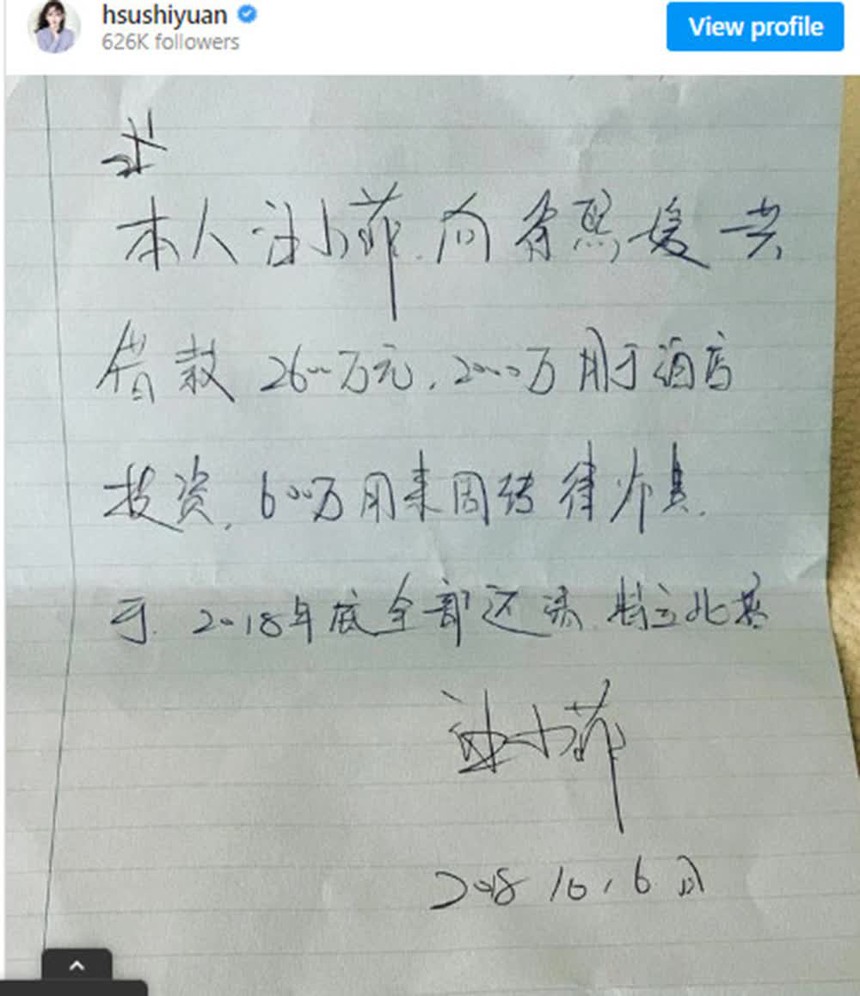 hsushiyuan
626K followers
View profile
本人汪小菲.向徐熙媛共
借款2600万元,2000万用于酒店
投资,600万用来周转律师费.
于.2018年底全部还清.特立此据
汪小菲
2018 10,6日